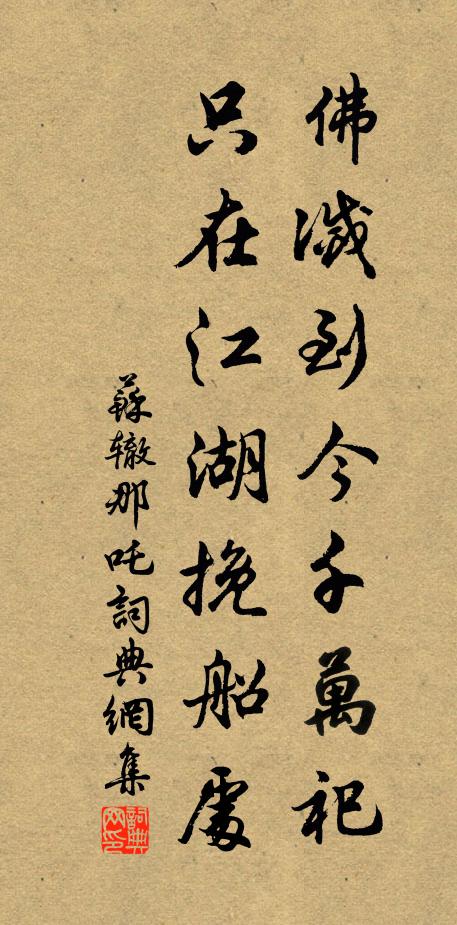 佛滅到今千萬祀
只在江湖挽船處
蘇辙那吒詞典網集
詞典网印